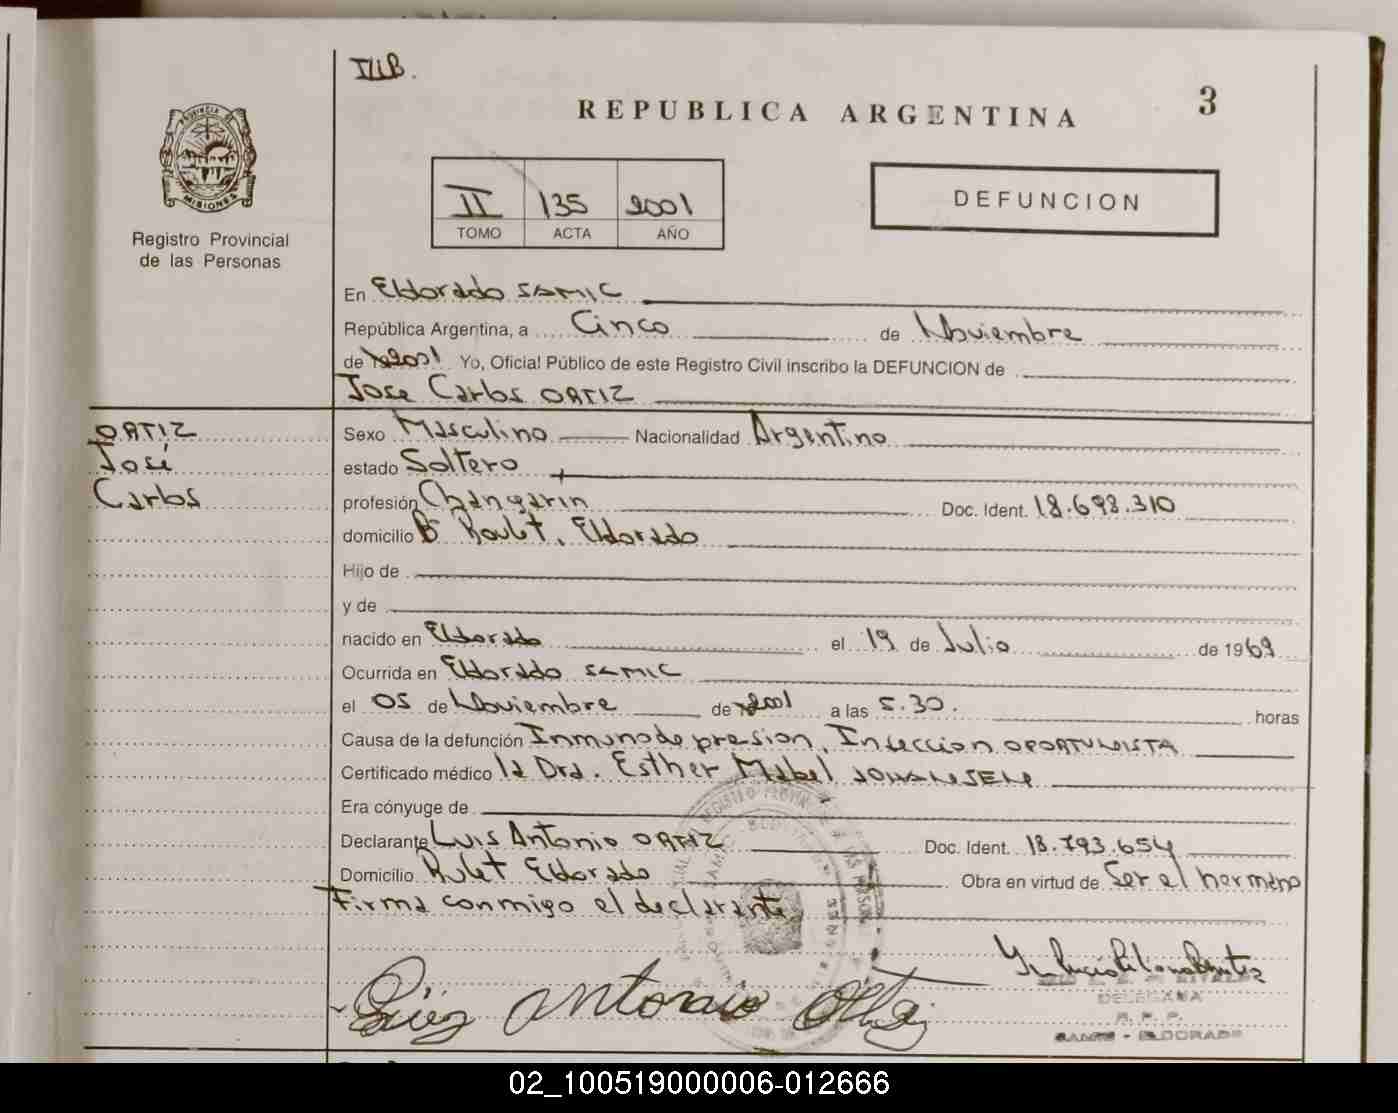 IIIB.
REPUBLICA ARGENTINA
3
PROVINCIA DE
MISIONES
Registro Provincial
de las Personas
II 135 2001
TOMO ACTA AÑO
DEFUNCION
En Eldorado SAMIC
República Argentina, a Cinco de Noviembre
de 2001 Yo, Oficial Público de este Registro Civil inscribo la DEFUNCION de
Jose Carlos ORTIZ
ORTIZ
José
Carlos
Sexo Masculino Nacionalidad Argentino
estado Soltero
profesión Changarin Doc. Ident. 18.698.310
domicilio B Roulet, Eldorado
Hijo de
y de
nacido en Eldorado el 19 de Julio de 1969
Ocurrida en Eldorado SAMIC
el 05 de Noviembre de 2001 a las 5.30. horas
Causa de la defunción Inmunodepresion, Infeccion OPORTUNISTA
Certificado médico la Dra. Esther Mabel JOHANSEN
Era cónyuge de
Declarante Luis Antonio ORTIZ Doc. Ident. 18.793.654
Domicilio Rulet Eldorado Obra en virtud de Ser el hermano
Firma conmigo el declarante
Antonio
DELEGADA
R. P. P.
SAMIC - ELDORADO
02_100519000006-012666